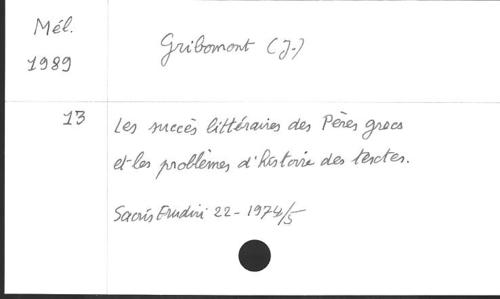 Mél.
1989
Gribomont (J.)
13
Les succès littéraires des Pères grecs
et les problèmes d'histoire des textes.
Sacris Erudiri 22 - 1974/5